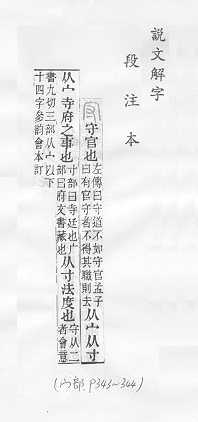 說文解字
段注本
守官也
左傳曰守道不如守官孟子
曰有官守者不得其職則去
从宀从寸
从宀寺府之事也
寸部曰寺廷也广
部曰府文書藏也
从寸法度也
守从二
者會意
書九切三部从宀以下
十四字參韵會本訂
(宀部 P343~344)